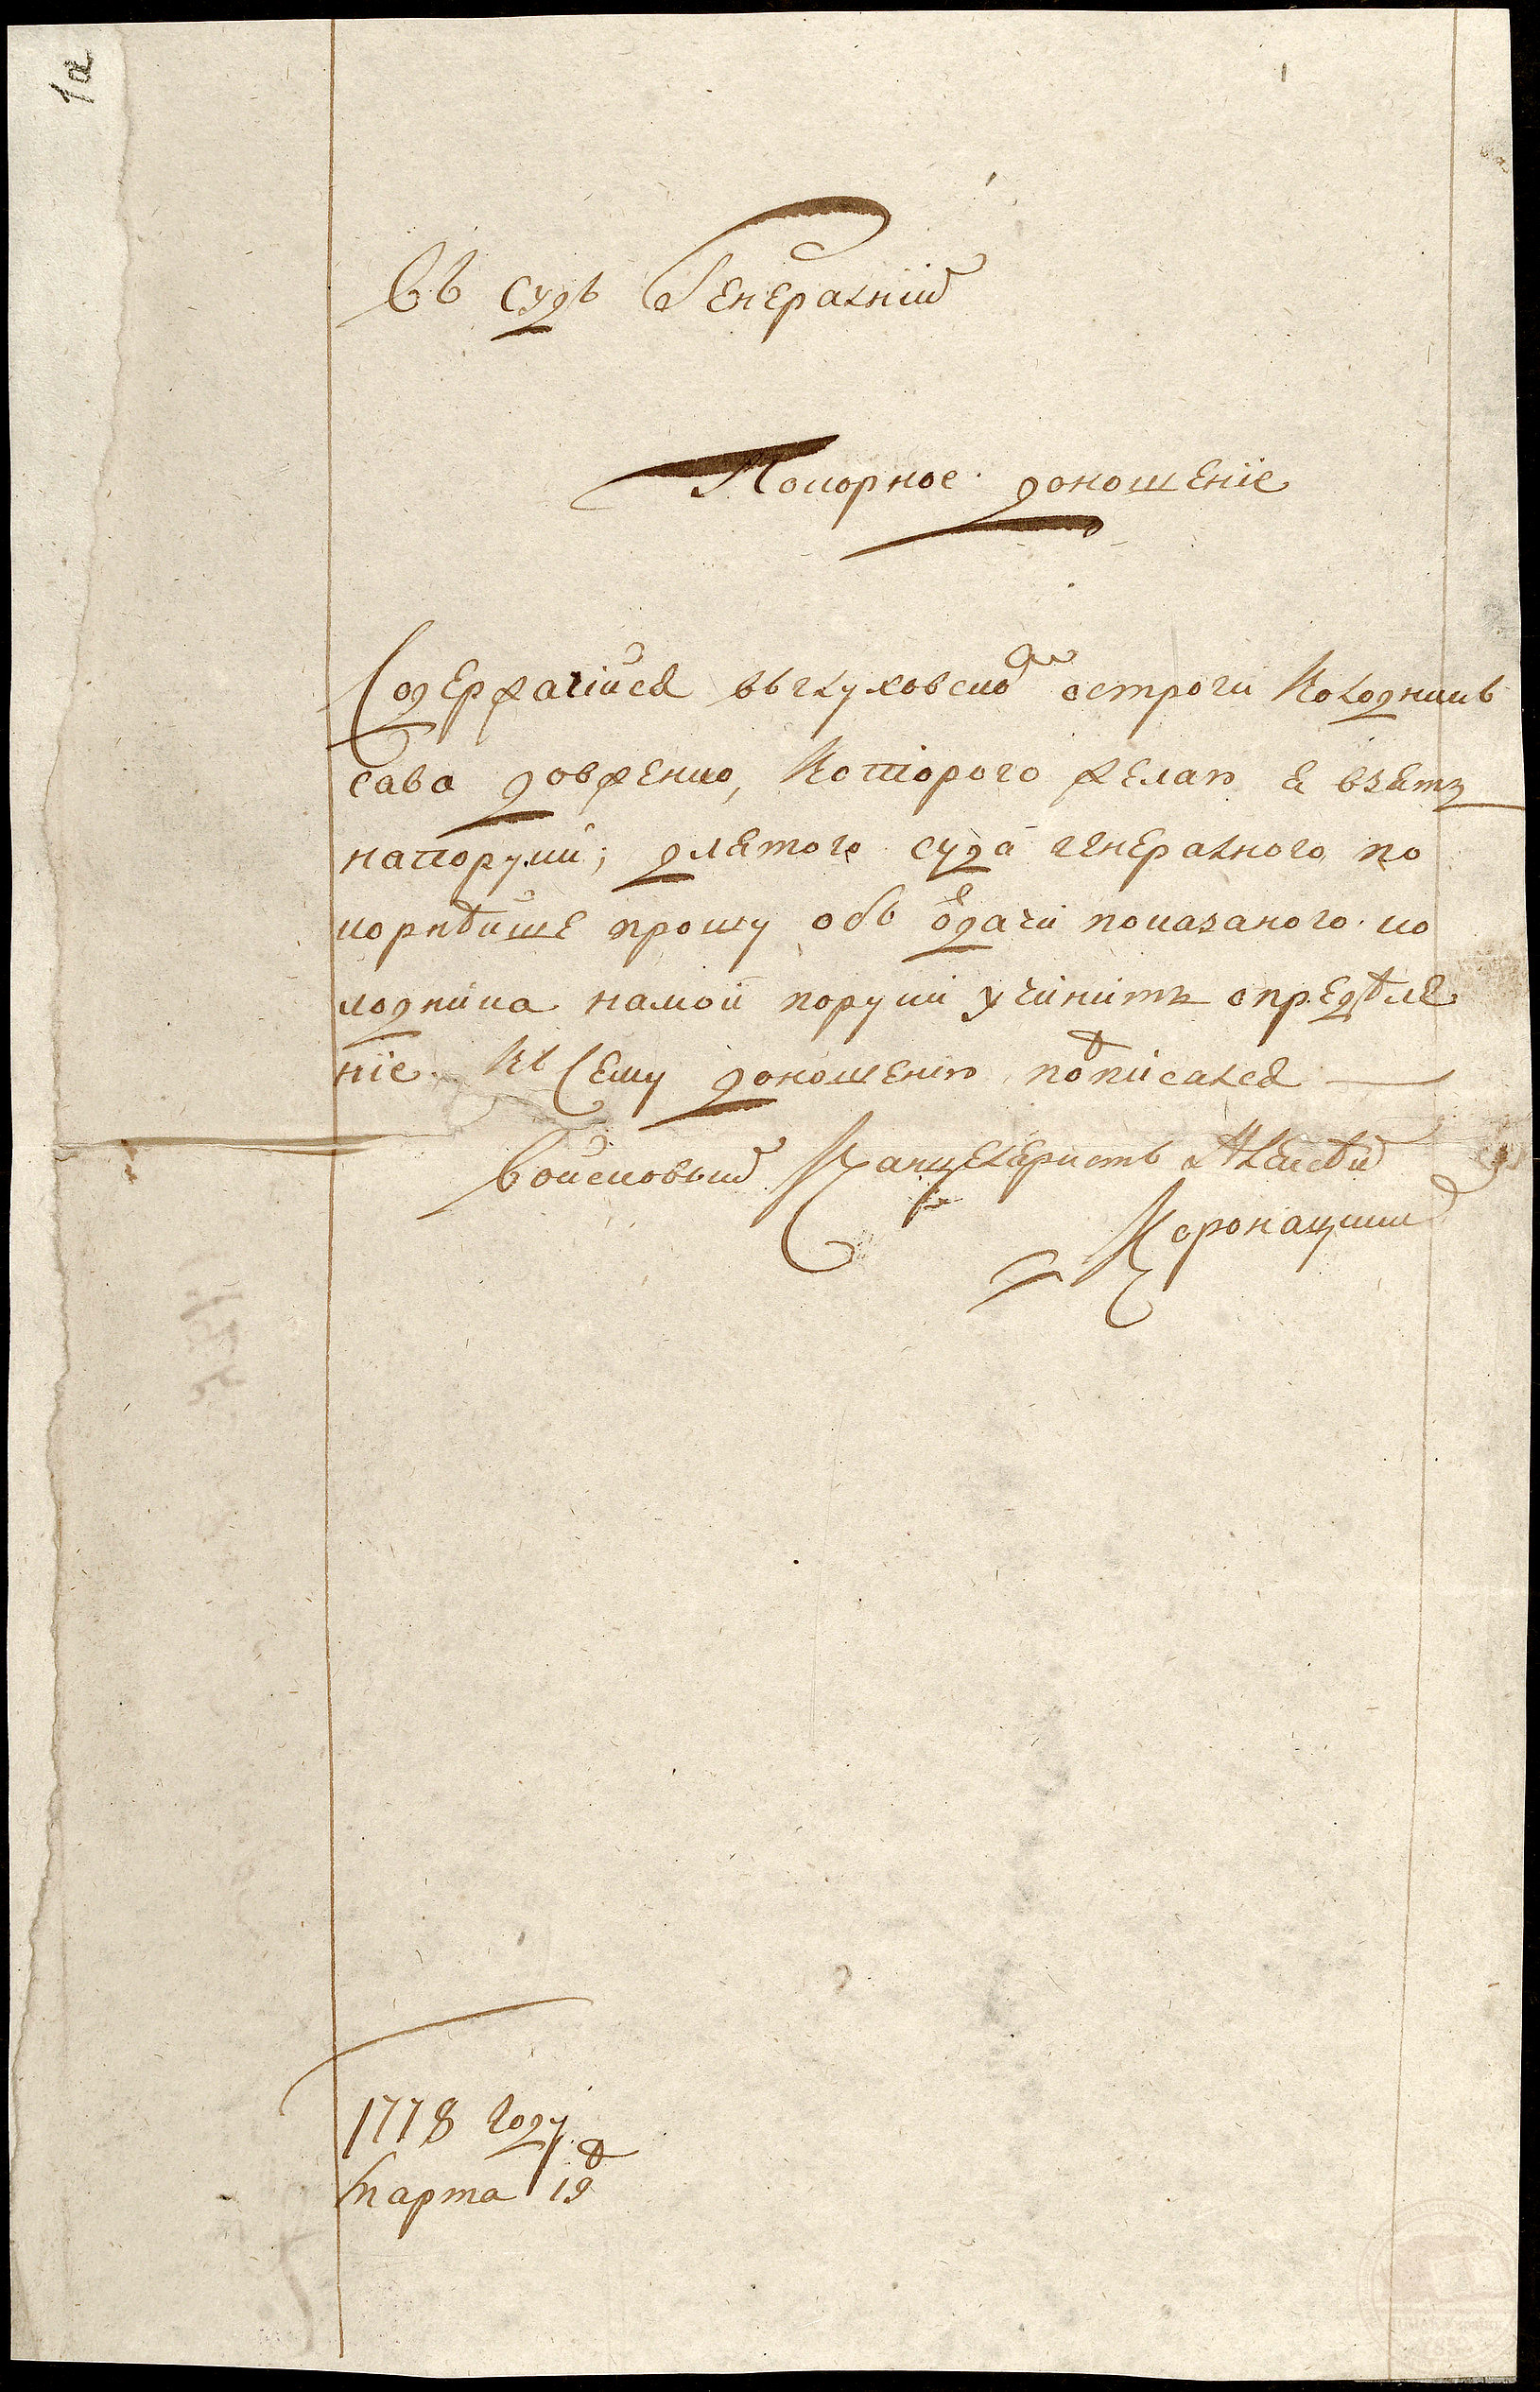 1а
Въ судъ Генералній
Покорное доношеніе
Содержачійся въ глуховско{м} остроги Колодникъ
сава довженко, Которого желаю я взять
на поруки; для того суда генералного по
корнѣйше прошу объ одачи показаного ко
лодника на мои поруки учинить опредѣле
ніе. Къ Сему доношению подписался
Войсковый Канцеляристъ Алексѣй
1778 году
Марта 19 д